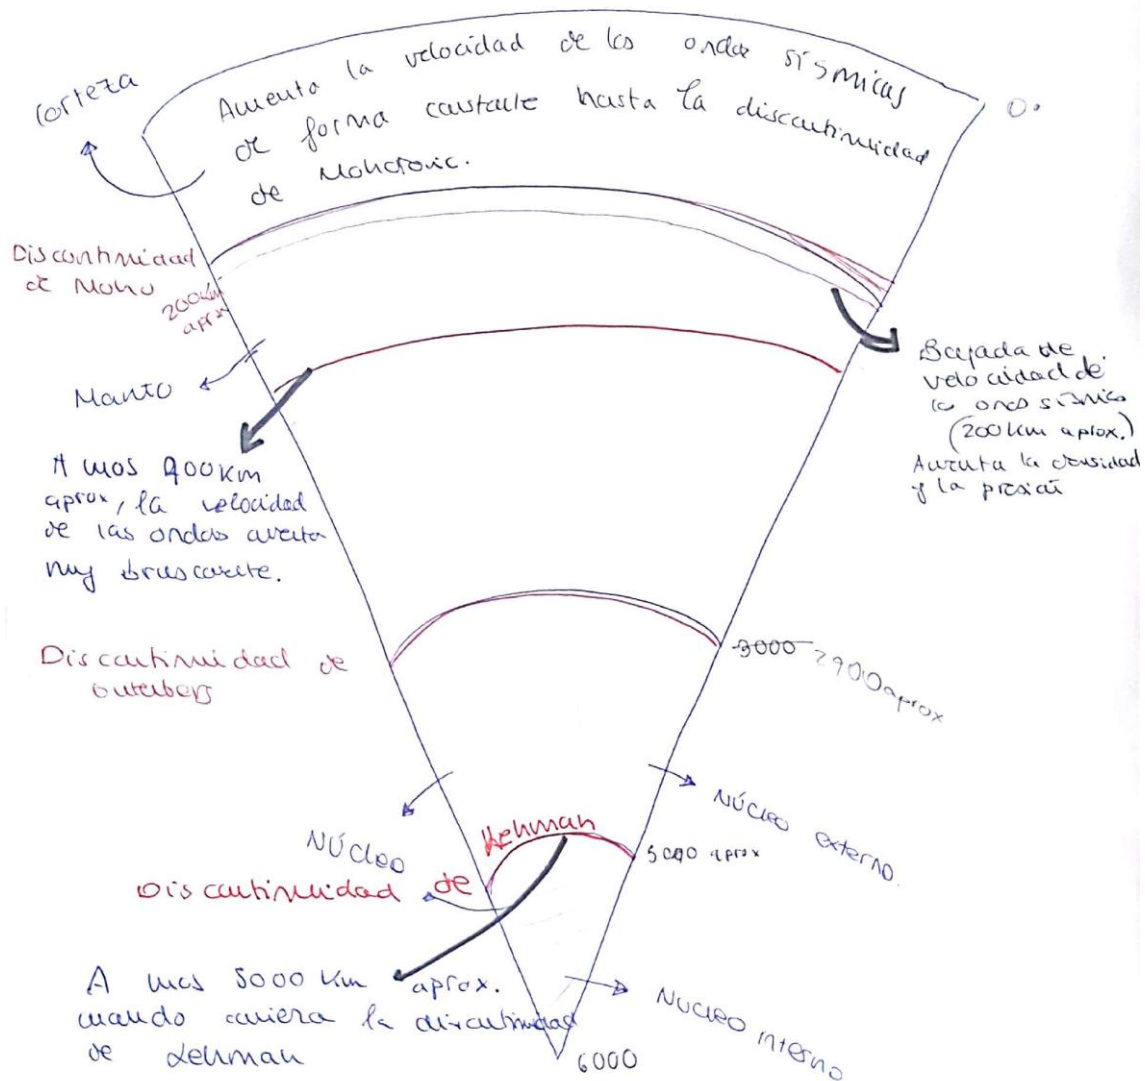 Corteza
Aumenta la velocidad de las ondas sísmicas
de forma constante hasta la discontinuidad
de Mohorovic.
0º
Discontinuidad
de Moho
200 km
aprox
Manto
Bajada de
velocidad de
la onda sísmica
(200 km aprox.)
Aumenta la densidad
y la presión
A unos 900 km
aprox, la velocidad
de las ondas aumenta
muy bruscamente.
Discontinuidad de
Gutenberg
3000 2900 aprox
Núcleo
Núcleo externo.
Lehman
5000 aprox
Discontinuidad de
A unos 5000 km aprox.
cuando comienza la discontinuidad
de Lehman
Núcleo interno
6000